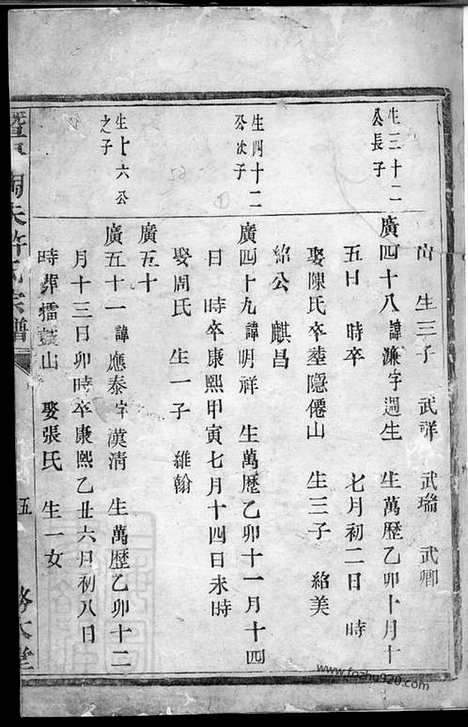 山 生三子 武祥 武瑞 武卿
生三十二
公長子
廣四十八 諱濂字遇生 生萬歷乙卯十月十
五日 時卒 七月初二日 時
娶陳氏卒塟隱僊山 生三子 紹美
紹公 麒昌
生四十二
公次子
廣四十九諱明祥 生萬歷乙卯十一月十四
日 時卒康熙甲寅七月十四日未時
娶周氏 生一子 維翰
廣五十
生七六公
之子
廣五十一 諱應泰字漢清 生萬歷乙卯十二
月十三日卯時卒康熙乙丑六月初八日
時葬擂鼓山 娶張氏 生一女
暨陽 許氏宗譜
五
www.fozhu920.com